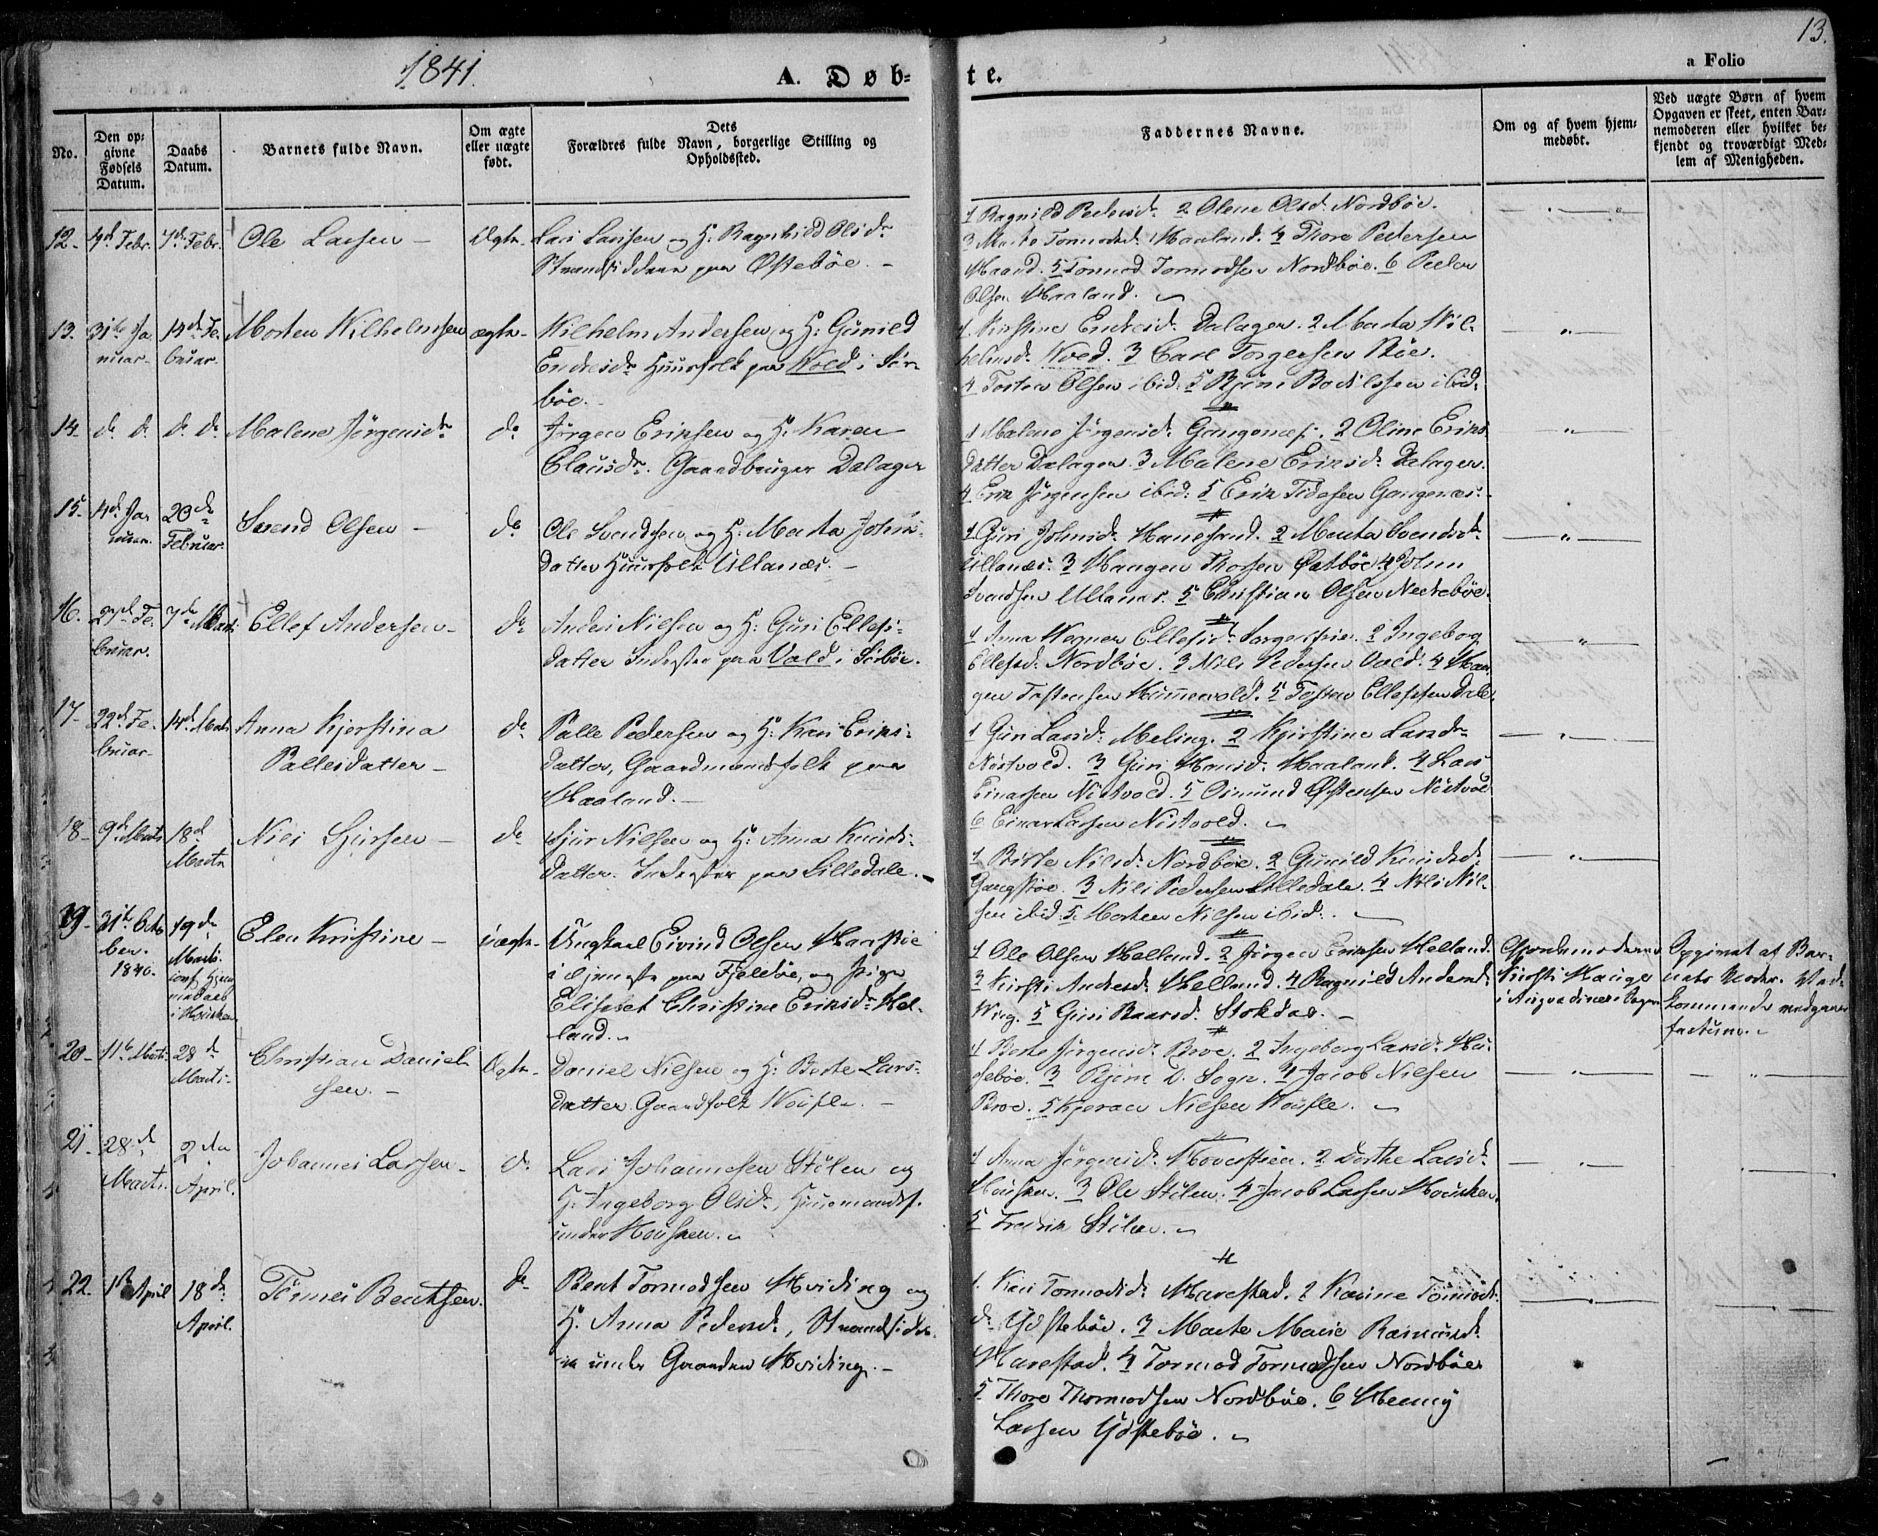 1841.
A. Døb-
te.
13.
a Folio
No.
Den op-
givne
Fødsels
Datum.
Daabs
Datum.
Barnets fulde Navn.
Om ægte
eller uægte
født.
Dets
Forældres fulde Navn, borgerlige Stilling og
Opholdssted.
Faddernes Navne.
Om og af hvem hjem-
medøbt.
Ved uægte Børn af hvem
Opgaven er skeet, enten Bar-
nemoderen eller hvilket be-
kjendt og troværdigt Med-
lem af Menigheden.
12. 4d Febr. 7d Febr. Ole Larsen – Ægte.
Lars Larssen og H. Ragnhild Olsdr
Strandsiddere paa Østebøe. –
1 Ragnild Pedersdr 2 Olene Olsd. Nordbøe.
3 Marta Tormodsd. Haaland. 4 Thore Pedersen
5 Tormod Tormodsen Nordbøe. 6 Peder
Olsen Haaland.
13. 31te Ja- 14d Fe- Morten Wilhelmsen ægte-
nuar. bruar.
Wilhelm Andersen og H. Gunild
Endresdr Huusfolk paa Vold i Sør-
bøe.
1. Kirstine Endresdr Dalager. 2 Marta Wil-
helmsd. Vold. 3 Carl Torgersen Bøe.
4 Tosten Olsen ibid. 5 Bjørn Bodilssen ibid.
14. d. d. d. d. Malene Jørgensdr do
Jørgen Eriksen og H. Karen
Clausdr. Gaardbruger Dalager
1 Malene Jørgensdr Gangenæs. 2 Oline Eriks-
datter Dalager. 3 Malene Eriksdr Dalager.
4 Erik Jørgensen ibid. 5 Erik Gangenæs.
15. 4d Ja- 20de Svend Olsen – do
nuar. Februar.
Ole Svendsen og H. Marta Johns-
datter Huusfolk Ullanæs. –
1 Guri Johnsdr Hanesand. 2 Marta Svendsdr
Ullanæs. 3 Haagen Thorsen Østbøe 4 John
Svendsen Ullanæs. 5 Christian Olsen Nedrebøe.
16. 27d Fe- 7de Marts Ellef Andersen – do
bruar.
Anders Nielsen og H. Guri Ellefs-
datter Inderster paa Vold i Sørbøe.
1 Anna Wegner Ellefsdr 2 Ingeborg
Ellefsd. Nordbøe. 3 Nils Pedersen Vold. 4 Haa-
gen Tostensen Hummervold. 5 Tosten Ellefsen Dale.
17. 22d Fe- 14d Marts Anna Kjerstina do
bruar. Pallesdatter –
Palle Pedersen og H. Kari Eriks-
datter, Gaardmandsfolk paa
Haaland. –
1 Guri Larsd. Meling. 2 Kjerstine Larsdr
Nistvold. 3 Guri Hansd. Haaland. 4 Lars
Einarsen Nistvold. 5 Osmund Østensen Nistvold
6 Einar Larsen Nistvold.
18. 9d Marts 18d Nils Sjursen – do
Marts
Sjur Nilsen og H. Anna Knuds-
datter. Inderster paa Lilledale. –
1 Birte Nilsd. Nordbøe. 2 Gunild Knudsd.
3 Nils Pedersen Lilledale. 4 Nils Nil-
sen ibid. 5. Morten Nilsen ibid.
19. 31te Octo- 19de Elen Kristine – uægte-
ber. Marts
1840.
Ungkarl Eivind Olsen
i tjeneste paa Fjeldbøe, og Pige
Elisabet Christine Eriksdr Hel-
land.
1 Ole Olsen Helland. 2 Jørgen Eriksen Helland.
3 Kirsti Andersd. Helland. 4 Ragnild Andersd.
5 Guri Baarsd. Stokdal. –
Jordemoderen
Kirsti Hauge
Opgivet af Bar-
nets Moder.
20. 11te Marts. 28d Christian Daniel- Ægte-
Marts. sen. –
Daniel Nilsen og H. Berte Lars-
datter Gaardfolk –
1 Berte Jørgensdr Broe. 2 Ingeborg Larsdr Hu-
sebøe. 3 Bjørn D. Sogn. 4 Jacob Nielsen
Broe. 5 Nielsen
21. 28d 2den Johannes Larsen – do
Marts. April.
Lars Johannesen Stølen og
H. Ingeborg Olsdr, Huusmandsf.
under Housken.
1 Anna Jørgensdr 2 Dorthe Larsdr
Housken. 3 Ole Stølen. 4 Jacob Larsen Housken.
5 Fredrik Stølen.
22. April 18de Tønnes Bentsen. do
April.
Bent Tormodsen Hviding og
H. Anna Pedersd., Strandsidde-
re under Gaarden Hviding. –
1. Kari Tormodsdr Harestad. 2 Karine Tormods-
dr Ydstebøe. 3 Marte Marie Rasmusdr
Harestad. 4 Tormod Tormodsen Nordbøe
5 Thore Thormodsen Nordbøe. 6 Henning
Larsen Ydstebøe.